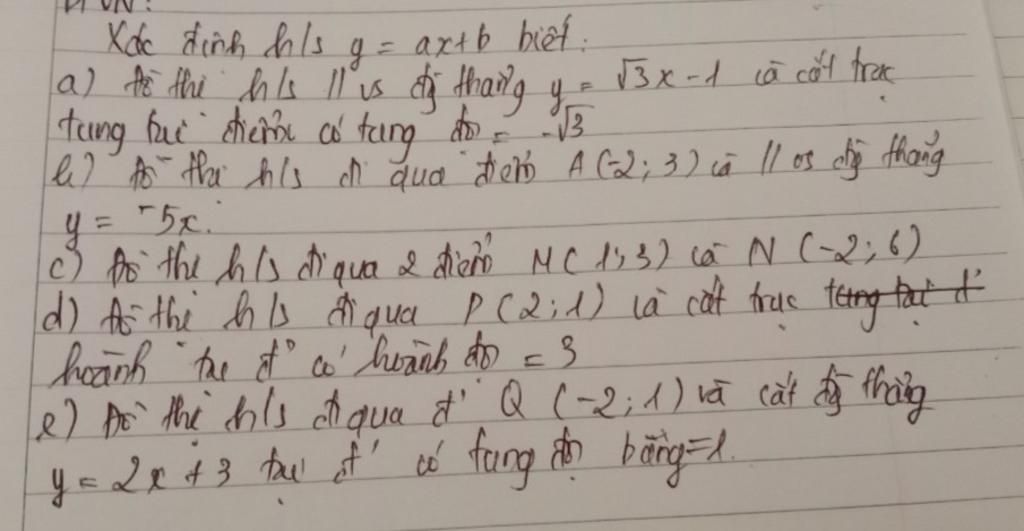 Xác định h/s y = ax+b biết:
a) Đồ thị h/s // vs đg thẳng y = √3x - 1 và cắt trục
tung tại điểm có tung độ = -√3
b) Đồ thị h/s đi qua điểm A (-2; 3) và // vs đg thẳng
y = -5x.
c) Đồ thị h/s đi qua 2 điểm M( 1; 3) và N (-2; 6)
d) Đồ thị h/s đi qua P (2; 1) và cắt trục tung tại đ'
hoành tại đ' có hoành độ = 3
e) Đồ thị h/s đi qua đ' Q (-2; 1) và cắt đg thẳng
y = 2x + 3 tại đ' có tung độ bằng=1.